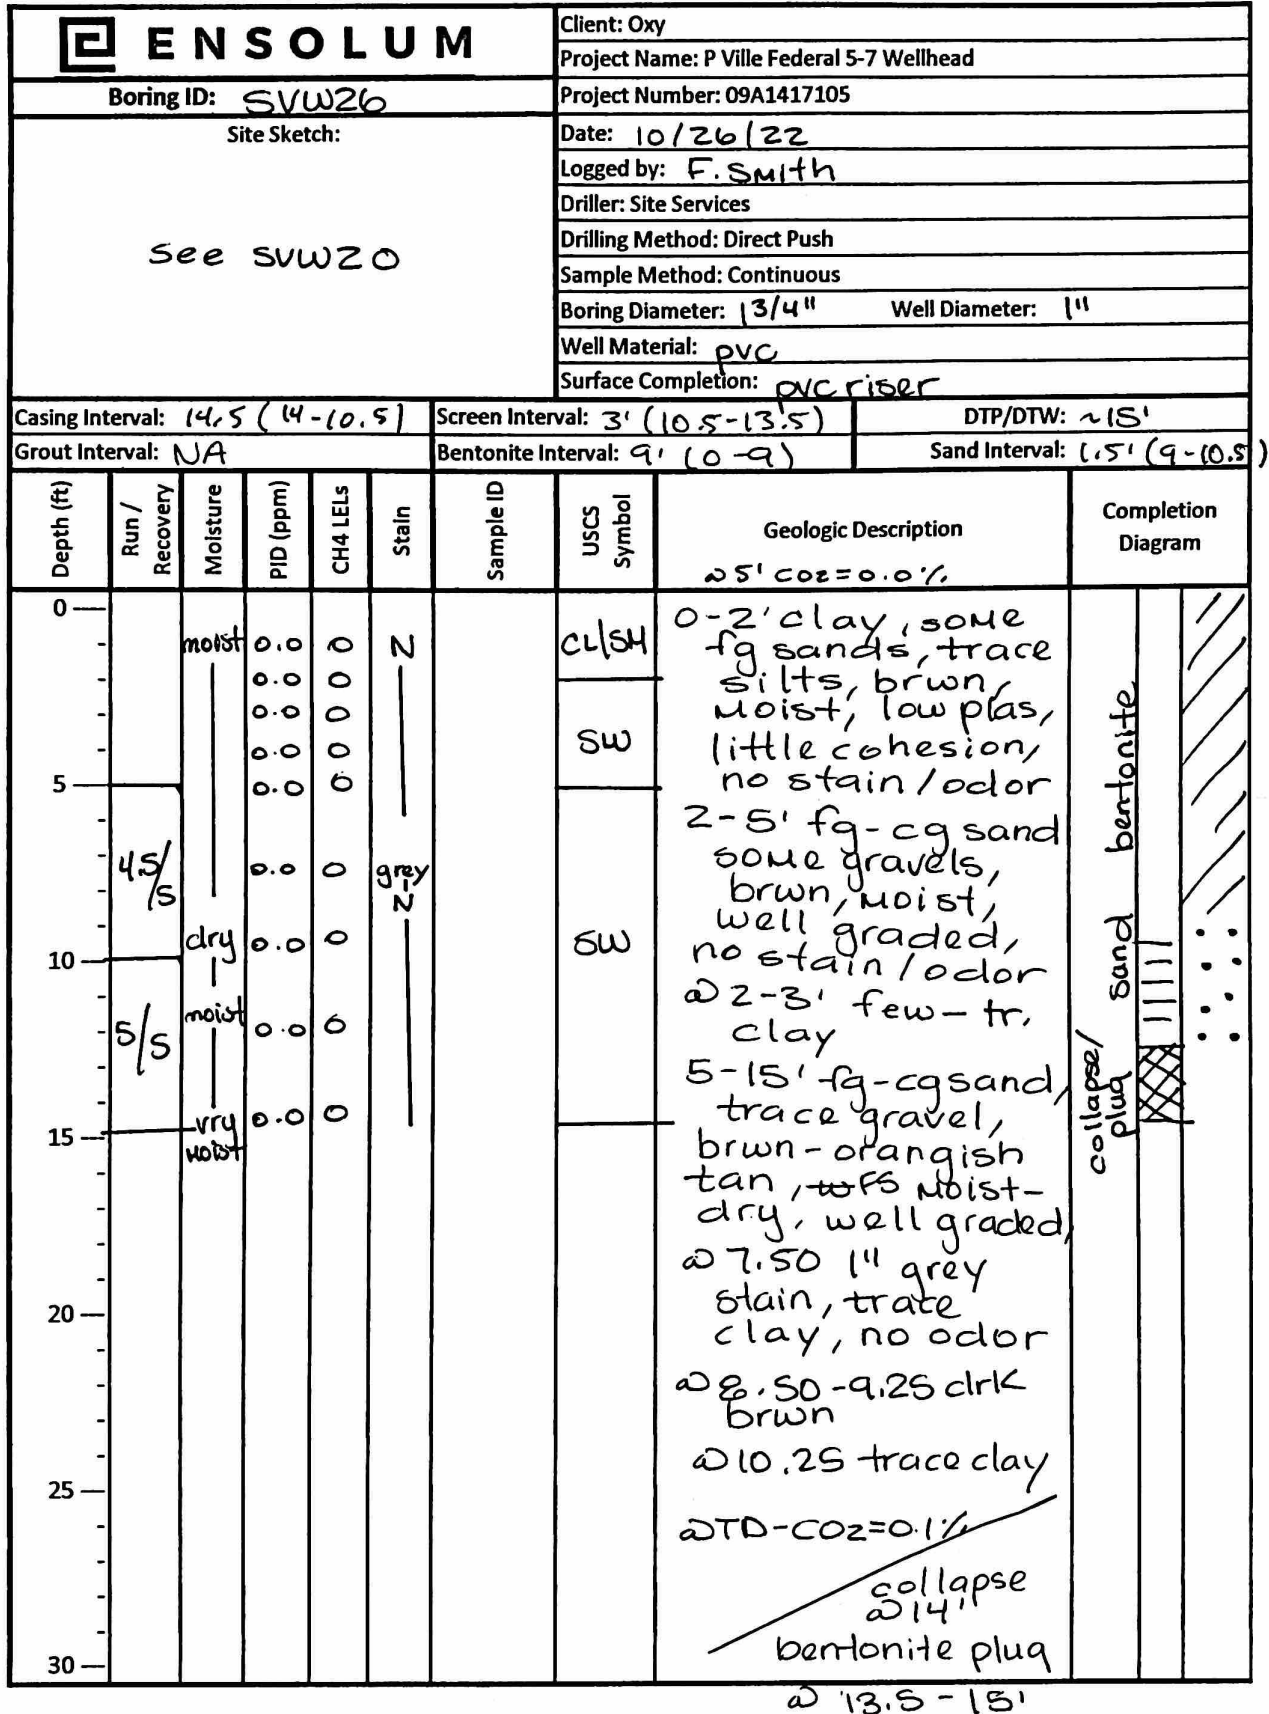 ENSOLUM
Boring ID: SVW26
Site Sketch:
See SVW20
Client: Oxy
Project Name: P Ville Federal 5-7 Wellhead
Project Number: 09A1417105
Date: 10/26/22
Logged by: F. Smith
Driller: Site Services
Drilling Method: Direct Push
Sample Method: Continuous
Boring Diameter: 1 3/4" Well Diameter: 1"
Well Material: PVC
Surface Completion: PVC riser
Casing Interval: 14.5 (14-10.5) Screen Interval: 3' (10.5-13.5) DTP/DTW: ~15'
Grout Interval: NA Bentonite Interval: 9' (0-9) Sand Interval: 1.5' (9-10.5)
Depth (ft) Run / Recovery Moisture PID (ppm) CH4 LELs Stain Sample ID USCS Symbol Geologic Description Completion Diagram
@ 5' CO2=0.0%
0
5
10
15
20
25
30
4.5/5
5/5
moist
dry
moist
vry
moist
0.0 0
0.0 0
0.0 0
0.0 0
0.0 0
0.0 0
0.0 0
0.0 0
0.0 0
N
grey
N
CL/SM
SW
SW
0-2' clay, some
fg sands, trace
silts, brwn,
moist, low plas,
little cohesion,
no stain/odor
2-5' fg-cg sand
some gravels,
brwn, moist,
well graded,
no stain/odor
@ 2-3' few-tr.
clay
5-15' fg-cg sand,
trace gravel,
brwn-orangish
tan, FS moist-
dry, well graded,
@ 7.50 1" grey
stain, trace
clay, no odor
@ 8.50-9.25 drk
brwn
@ 10.25 trace clay
@ TD-CO2=0.1%
collapse
@ 14'
bentonite plug
@ 13.5-15'
bentonite
sand
collapse/
plug